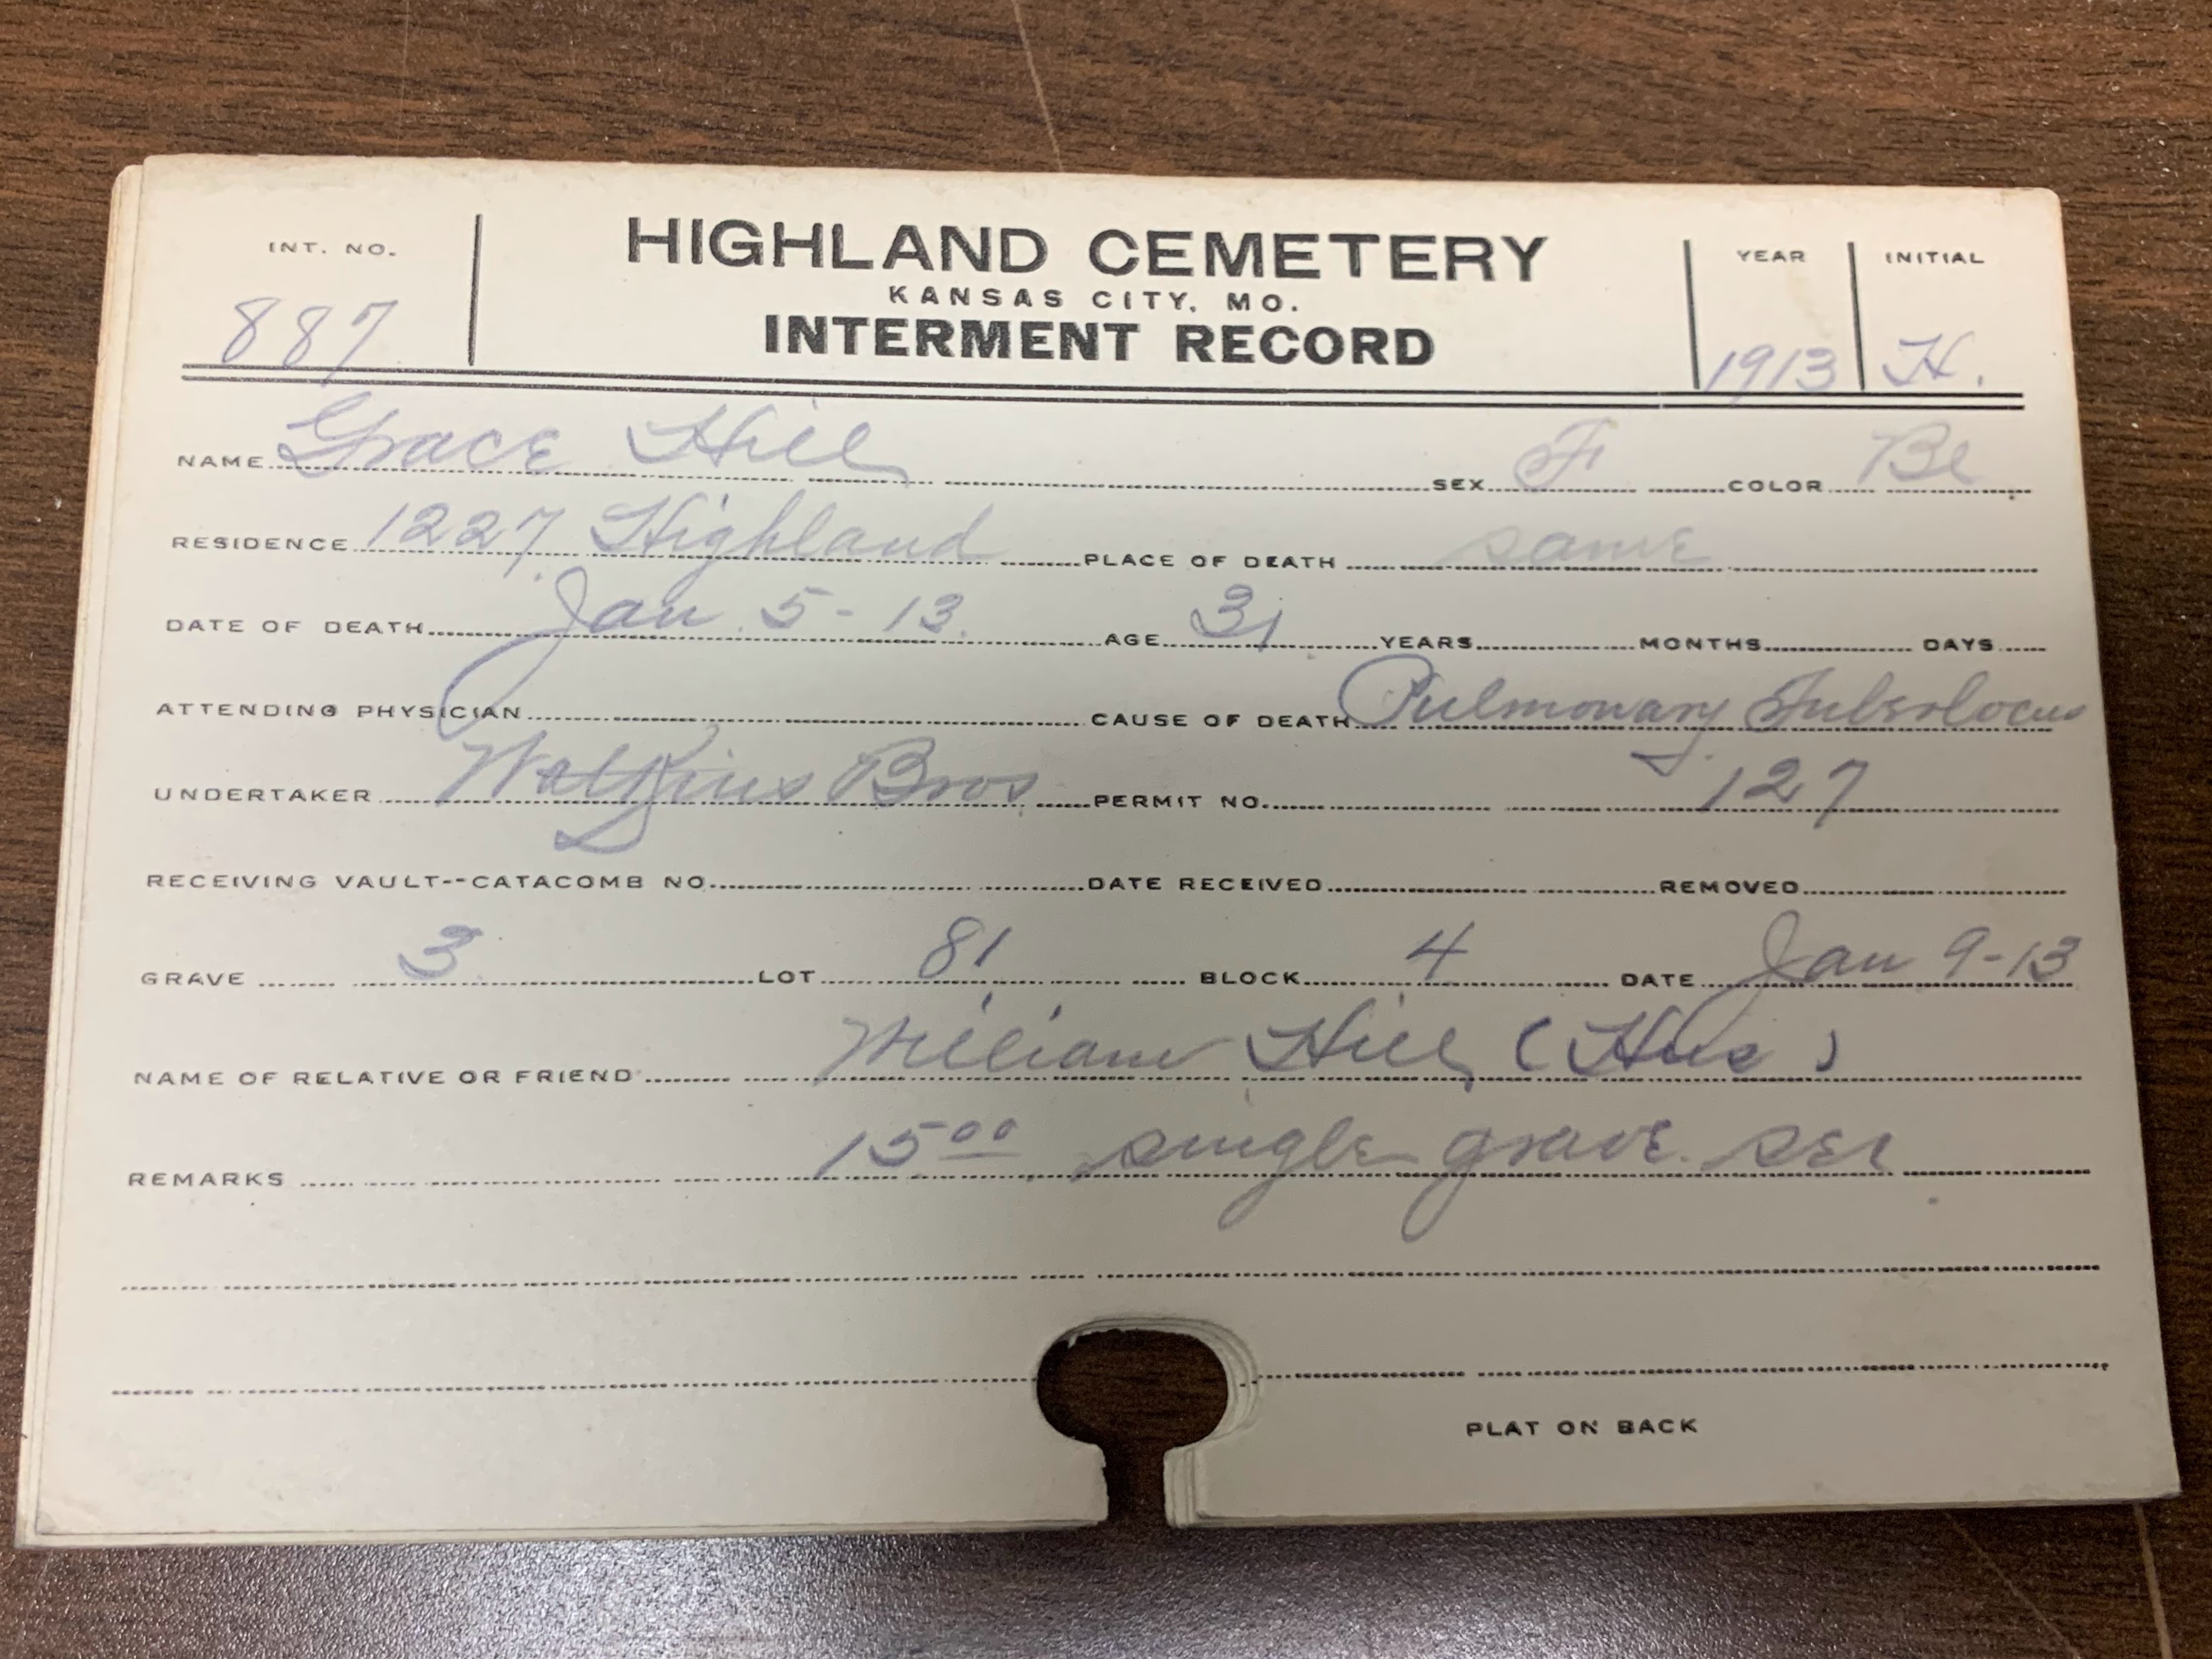 INT. NO. HIGHLAND CEMETERY YEAR INITIAL
KANSAS CITY, MO.
887 INTERMENT RECORD 1913 H.
NAME Grace Hill SEX F COLOR Bl
RESIDENCE 1227 Highland PLACE OF DEATH same
DATE OF DEATH Jan 5-13 AGE 31 YEARS MONTHS DAYS
ATTENDING PHYSICIAN CAUSE OF DEATH Pulmonary
UNDERTAKER Watkins Bros PERMIT NO. 127
RECEIVING VAULT--CATACOMB NO. DATE RECEIVED REMOVED
GRAVE 3 LOT 81 BLOCK 4 DATE Jan 9-13
NAME OF RELATIVE OR FRIEND William Hill (Hus)
REMARKS 1500 single grave sec
PLAT ON BACK